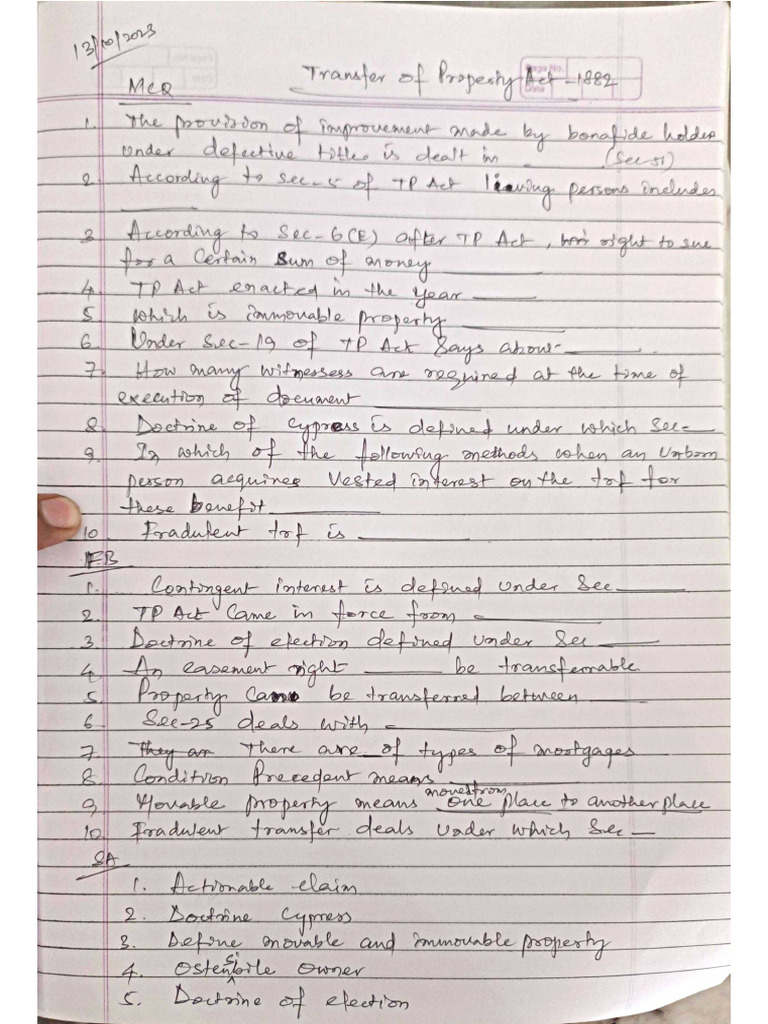 13/10/2023
Transfer of Property Act - 1882
Page No.
Date
MCQ
1. The provision of improvement made by bonafide holder
under defective titles is dealt in _ (Sec-51)
2. According to Sec-5 of TP Act living persons includes
______
3. According to Sec-6(E) after TP Act, right to sue
for a certain Sum of money ______
4. TP Act enacted in the year ______
5. which is immovable property ______
6. Under Sec-19 of TP Act Says above- ______
7. How many witnessess are required at the time of
execution of document ______
8. Doctrine of cypress is defined under which Sec-__
9. In which of the following methods when an Unborn
person acquires Vested interest on the trf for
these benefit ______
10. Fradulent trf is ______
F.B
1. Contingent interest is defined under Sec ____
2. TP Act Came in force from ______
3. Doctrine of election defined under Sec ____
4. An easement right ______ be transferrable
5. Property Can be transferred between ______
6. Sec-25 deals with - ______
7. They are There are __ of types of mortgages
8. Condition Precedent means ______
9. Movable property means moves from one place to another place
10. Fradulent transfer deals under which Sec __
SA
1. Actionable claim
2. Doctrine Cypress
3. Define movable and immovable property
4. Ostensibile owner
5. Doctrine of election